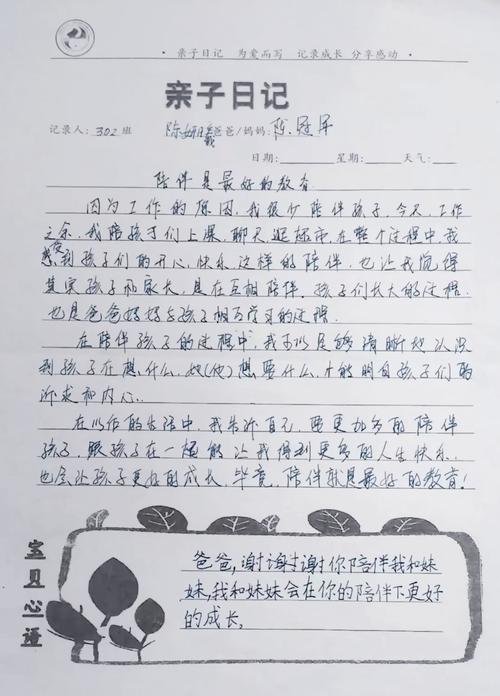 · 亲子日记 为爱而写 记录成长 分享感动 ·
亲子日记
记录人：302班 陈妍曦爸爸/妈妈：陈冠军
日期： 星期： 天气：
陪伴是最好的教育
因为工作的原因，我很少陪伴孩子，今天，工作
之余，我陪孩子们上课，聊天逛超市，在整个过程中我
感受到孩子们的开心，快乐，这样的陪伴，也让我觉得
其实孩子和家长，是在互相陪伴，孩子们长大的过程
也是爸爸妈妈与孩子相互学习的过程
在陪伴孩子的过程中，我可以足够清晰地认识
到孩子在想什么，她(他)想要什么，才能明白孩子们的
诉求和内心
在以后的生活中，我告诉自己，要更加多的陪伴
孩子，跟孩子在一起能让我得到更多的人生快乐，
也会让孩子更好的成长，毕竟，陪伴就是最好的教育！
宝贝心语
爸爸，谢谢谢谢你陪伴我和妹
妹，我和妹妹会在你的陪伴下更好
的成长，